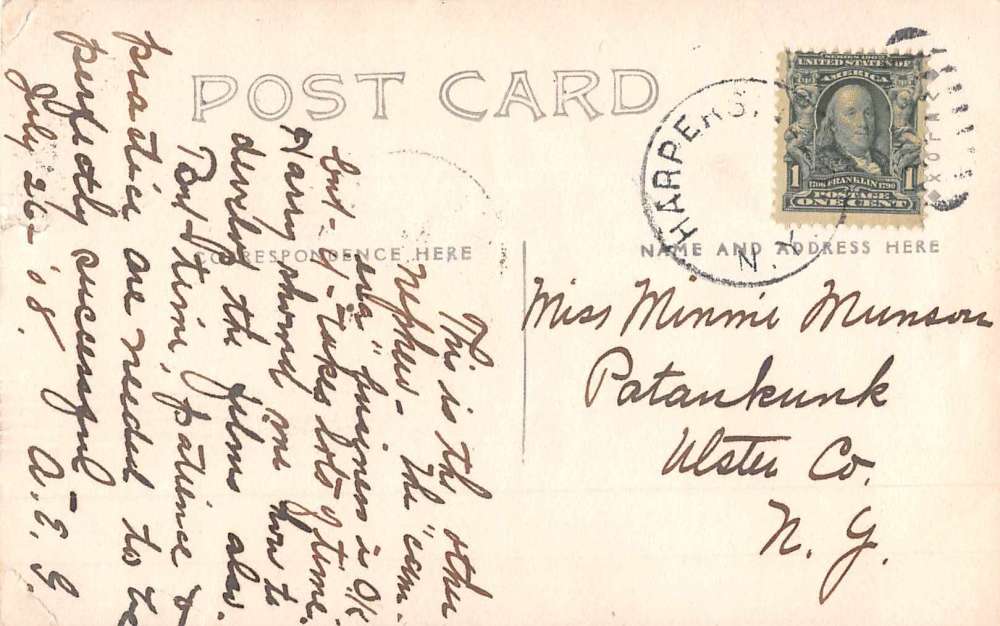 POST CARD
CORRESPONDENCE HERE
NAME AND ADDRESS HERE
HARPERS
N.Y.
UNITED STATES OF
AMERICA
1 1706 FRANKLIN 1790 1
POSTAGE
ONE CENT
Miss Minnie Munson
Patankunk
Ulster Co.
N. Y.
This is the other
nephew - The "cam-
era" business is OK
but - it - takes lots of time.
Harry showed me how to
develop the films also.
But time, patience &
practice are needed to be
perfectly successful -
July 26 - '08. A. E. G.